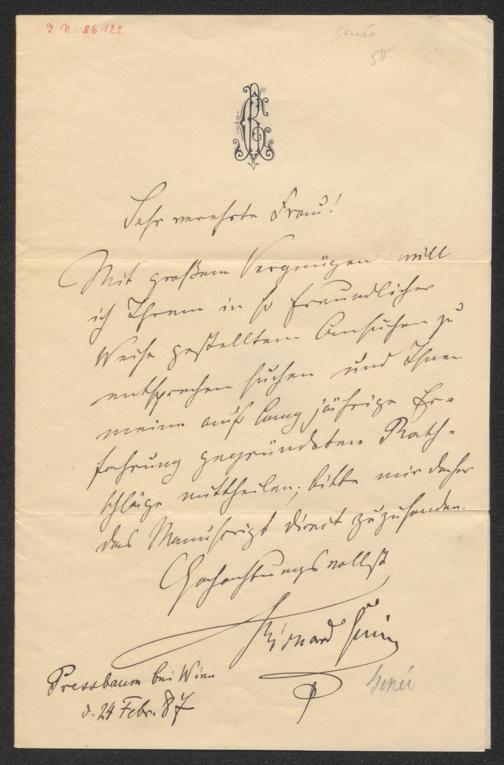 I. N. 86122
Genée
50
Sehr verehrte Frau!
Mit großem Vergnügen will
ich Ihrem in so freundlicher
Weise gestelltem Ansuchen zu
entsprechen suchen und Ihnen
meine auf lang jährige Er-
fahrung gegründeten Rath-
schläge mittheilen; bitte mir daher
das Manuscript direct zuzusenden.
Hochachtungsvollst
Richard Genée
Genée
Pressbaum bei Wien
d. 24 Febr. 87